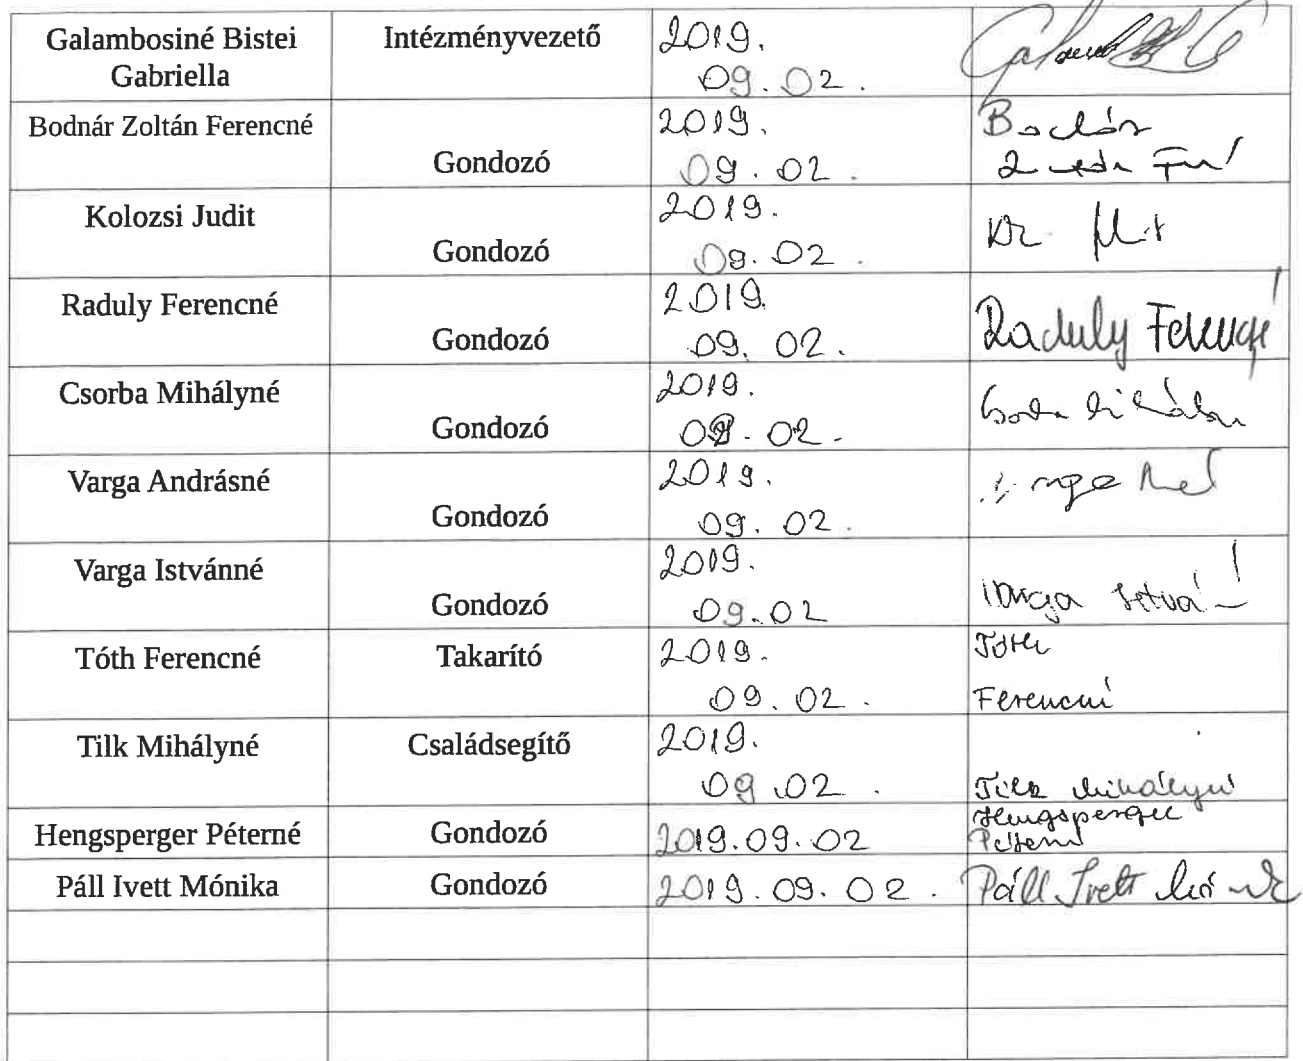 Galambosiné Bistei
Gabriella
Intézményvezető
2019.
09.02.
Bodnár Zoltán Ferencné
Gondozó
2019.
09.02.
Kolozsi Judit
Gondozó
2019.
09.02.
Raduly Ferencné
Gondozó
2019.
09.02.
Raduly Ferencné
Csorba Mihályné
Gondozó
2019.
09.02.
Varga Andrásné
Gondozó
2019.
09.02.
Varga Istvánné
Gondozó
2019.
09.02
Varga
Tóth Ferencné
Takarító
2019.
09.02.
Tóth
Ferencné
Tilk Mihályné
Családsegítő
2019.
09.02.
Tilk Mihályné
Hengsperger Péterné
Gondozó
2019.09.02
Hengsperger
Péterné
Páll Ivett Mónika
Gondozó
2019.09.02.
Páll Ivett Mónika